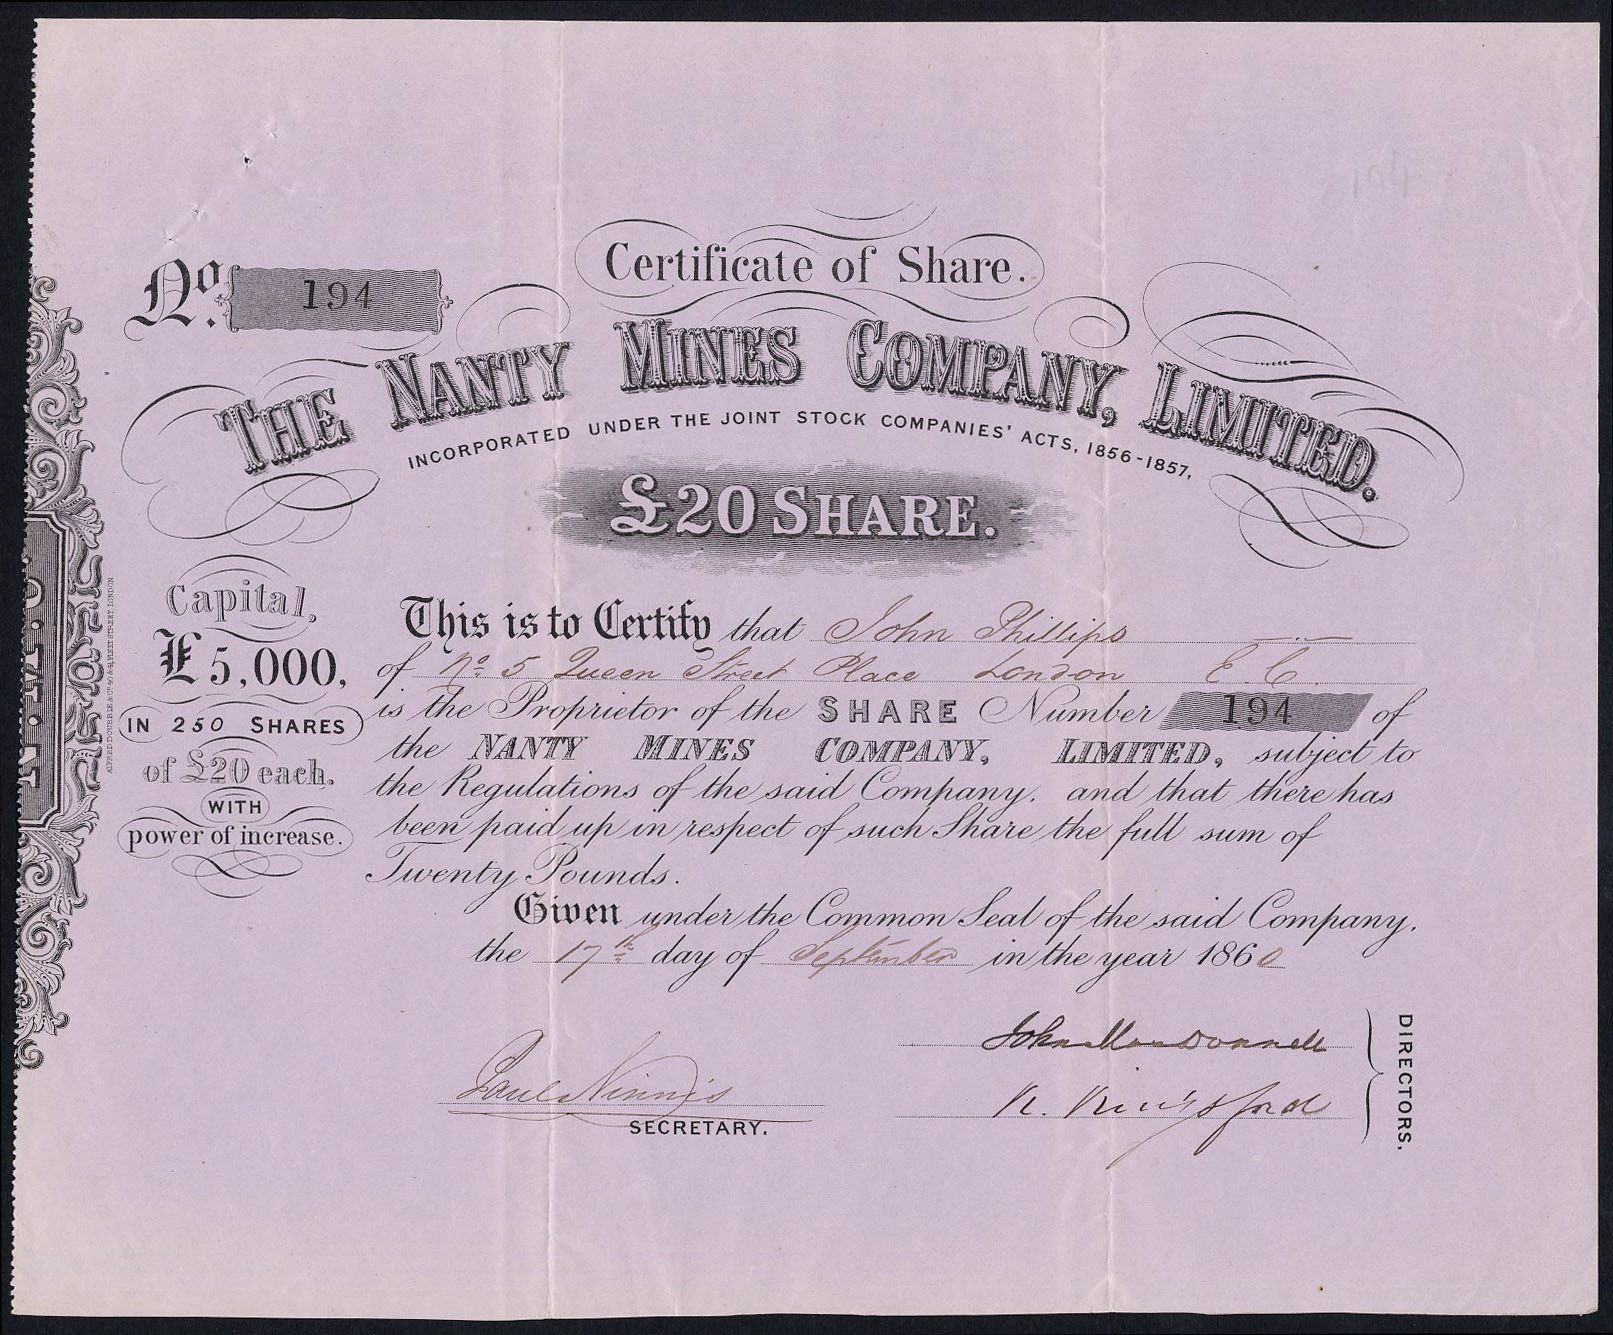 194
Certificate of Share.
No. 194
THE NANTY MINES COMPANY, LIMITED.
INCORPORATED UNDER THE JOINT STOCK COMPANIES' ACTS, 1856-1857,
£20 SHARE.
Capital,
£5,000,
IN 250 SHARES
of £20 each.
WITH
power of increase.
This is to Certify that John Phillips
of No. 5 Queen Street Place London E.C.
is the Proprietor of the SHARE Number 194 of
the NANTY MINES COMPANY, LIMITED, subject to
the Regulations of the said Company, and that there has
been paid up in respect of such Share the full sum of
Twenty Pounds.
Given under the Common Seal of the said Company,
the 17th day of September in the year 1860
John MacDonnell
Paul Ninnis
SECRETARY.
DIRECTORS.